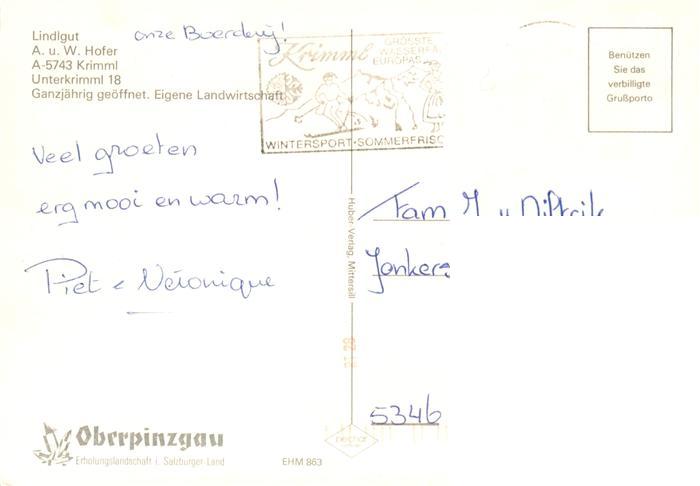 Lindlgut
A. u. W. Hofer
A-5743 Krimml
Unterkrimml 18
Ganzjährig geöffnet. Eigene Landwirtschaft
onze Boerderij!
Krimml
GRÖSSTE
WASSERFÄ
EUROPAS
WINTERSPORT·SOMMERFRISC
Benützen
Sie das
verbilligte
Grußporto
Veel groeten
erg mooi en warm!
Piet & Véronique
Huber-Verlag, Mittersill
Fam
Jonkers
5346
Oberpinzgau
Erholungslandschaft i. Salzburger-Land
EHM 863